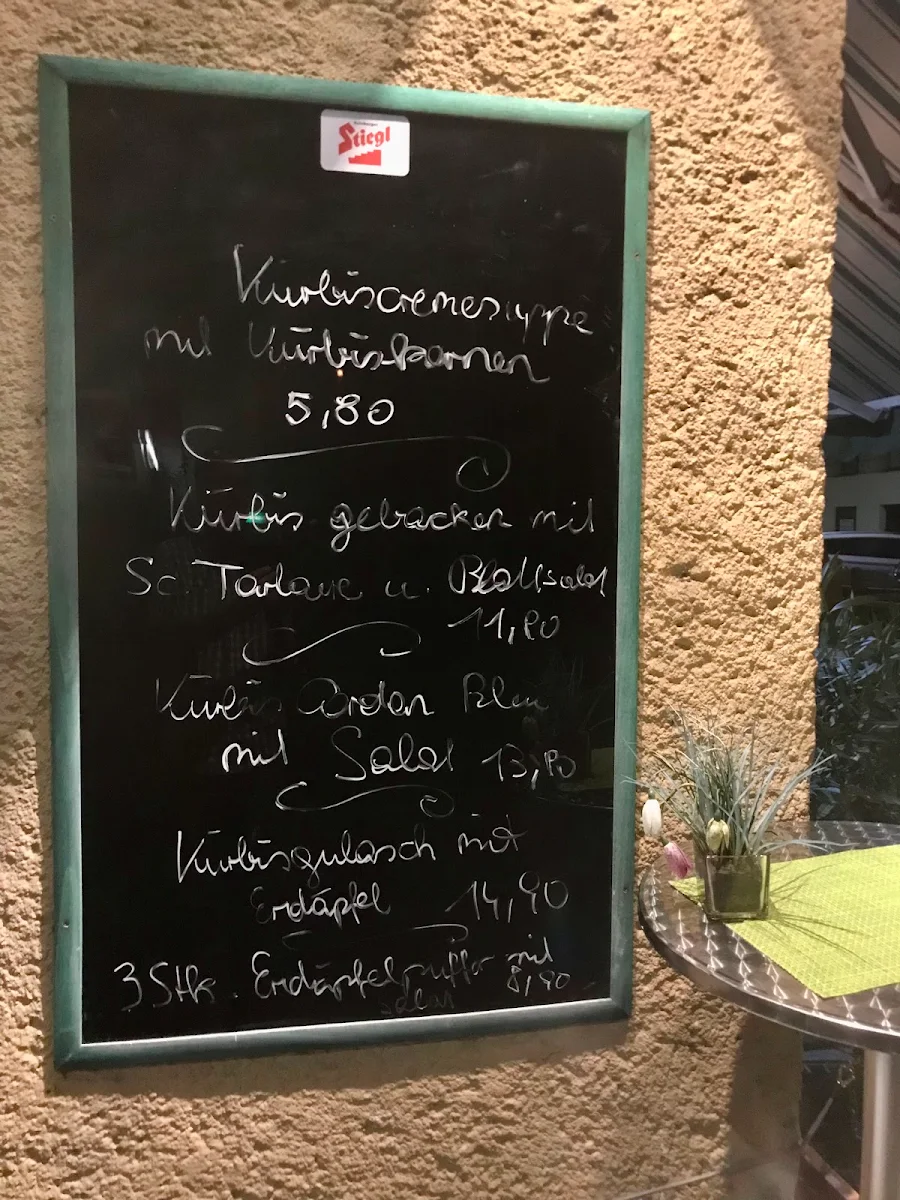 Stiegl
Kürbiscremesuppe
mit Kürbiskernen
5,80
Kürbis gebacken mit
Sc. Tartare u. Blattsalat
11,80
Kürbis Cordon Bleu
mit Salat 13,80
Kürbisgulasch mit
Erdäpfel 14,90
3 Stk. Erdäpfelpuffer mit
Salat 8,90